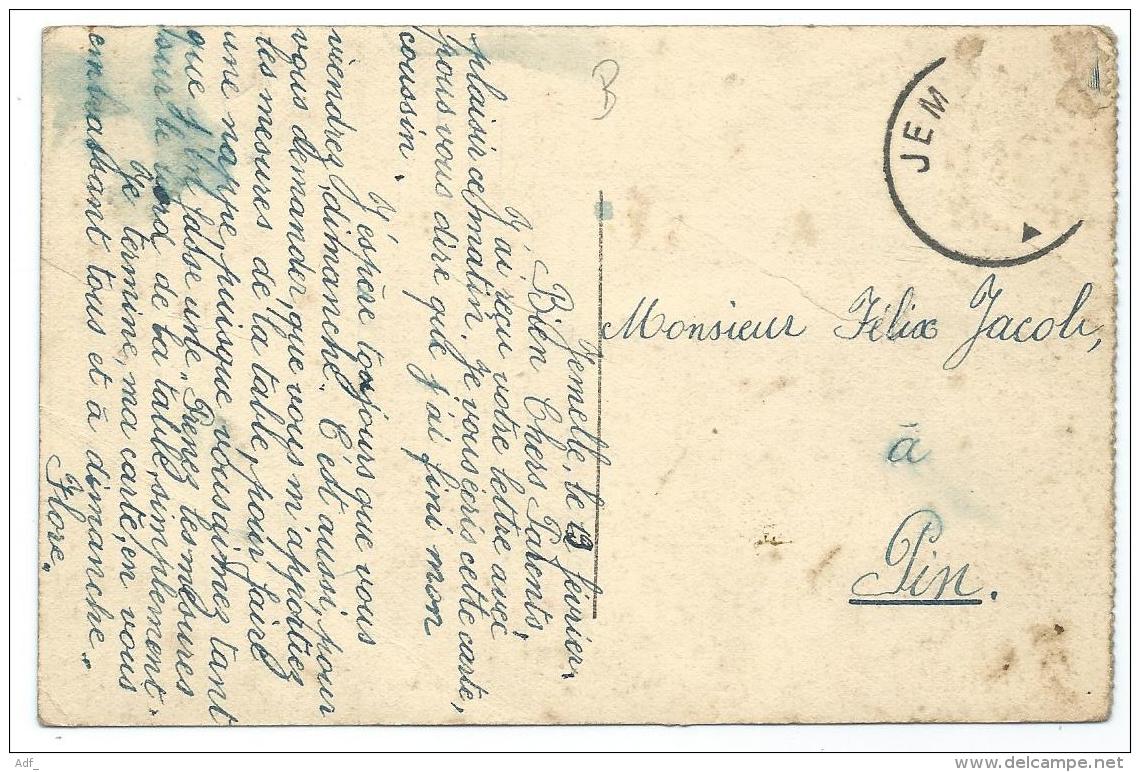 Jemelle, le 19 février.
Bien Chers Parents,
J'ai reçu votre lettre avec
plaisir ce matin. Je vous écris cette carte,
pour vous dire que j'ai fini mon
coussin.
J'espère toujours que vous
viendrez, dimanche. C'est aussi, pour
vous demander, que vous m'apportiez
les mesures de la table, pour faire
une nappe, puisque vous aimez tant
que j'en fasse une. Prenez les mesures
pour le bord de la table, simplement.
Je termine, ma carte, en vous
embrassant tous et à dimanche.
Flore.
JEM
Monsieur Félix Jacob,
à
Pin.
Adf_
delcampe.net